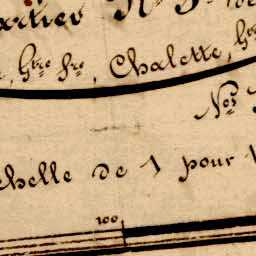 artier N
, h^{bre} f^{re}, Chalette, h^{bre}
N^{os}
chelle de 1 pour 1
100